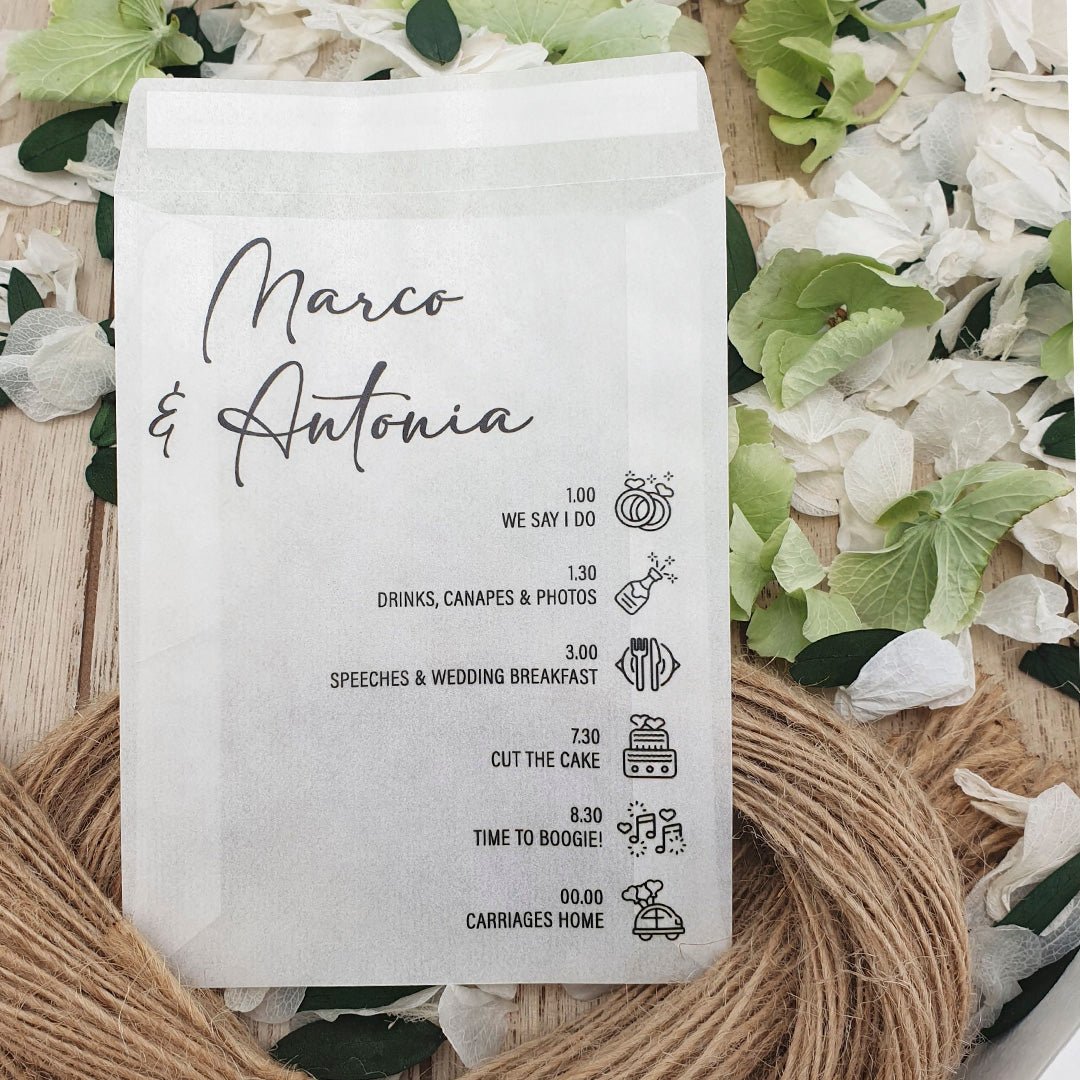 Marco
& Antonia
1.00
WE SAY I DO
1.30
DRINKS, CANAPES & PHOTOS
3.00
SPEECHES & WEDDING BREAKFAST
7.30
CUT THE CAKE
8.30
TIME TO BOOGIE!
00.00
CARRIAGES HOME